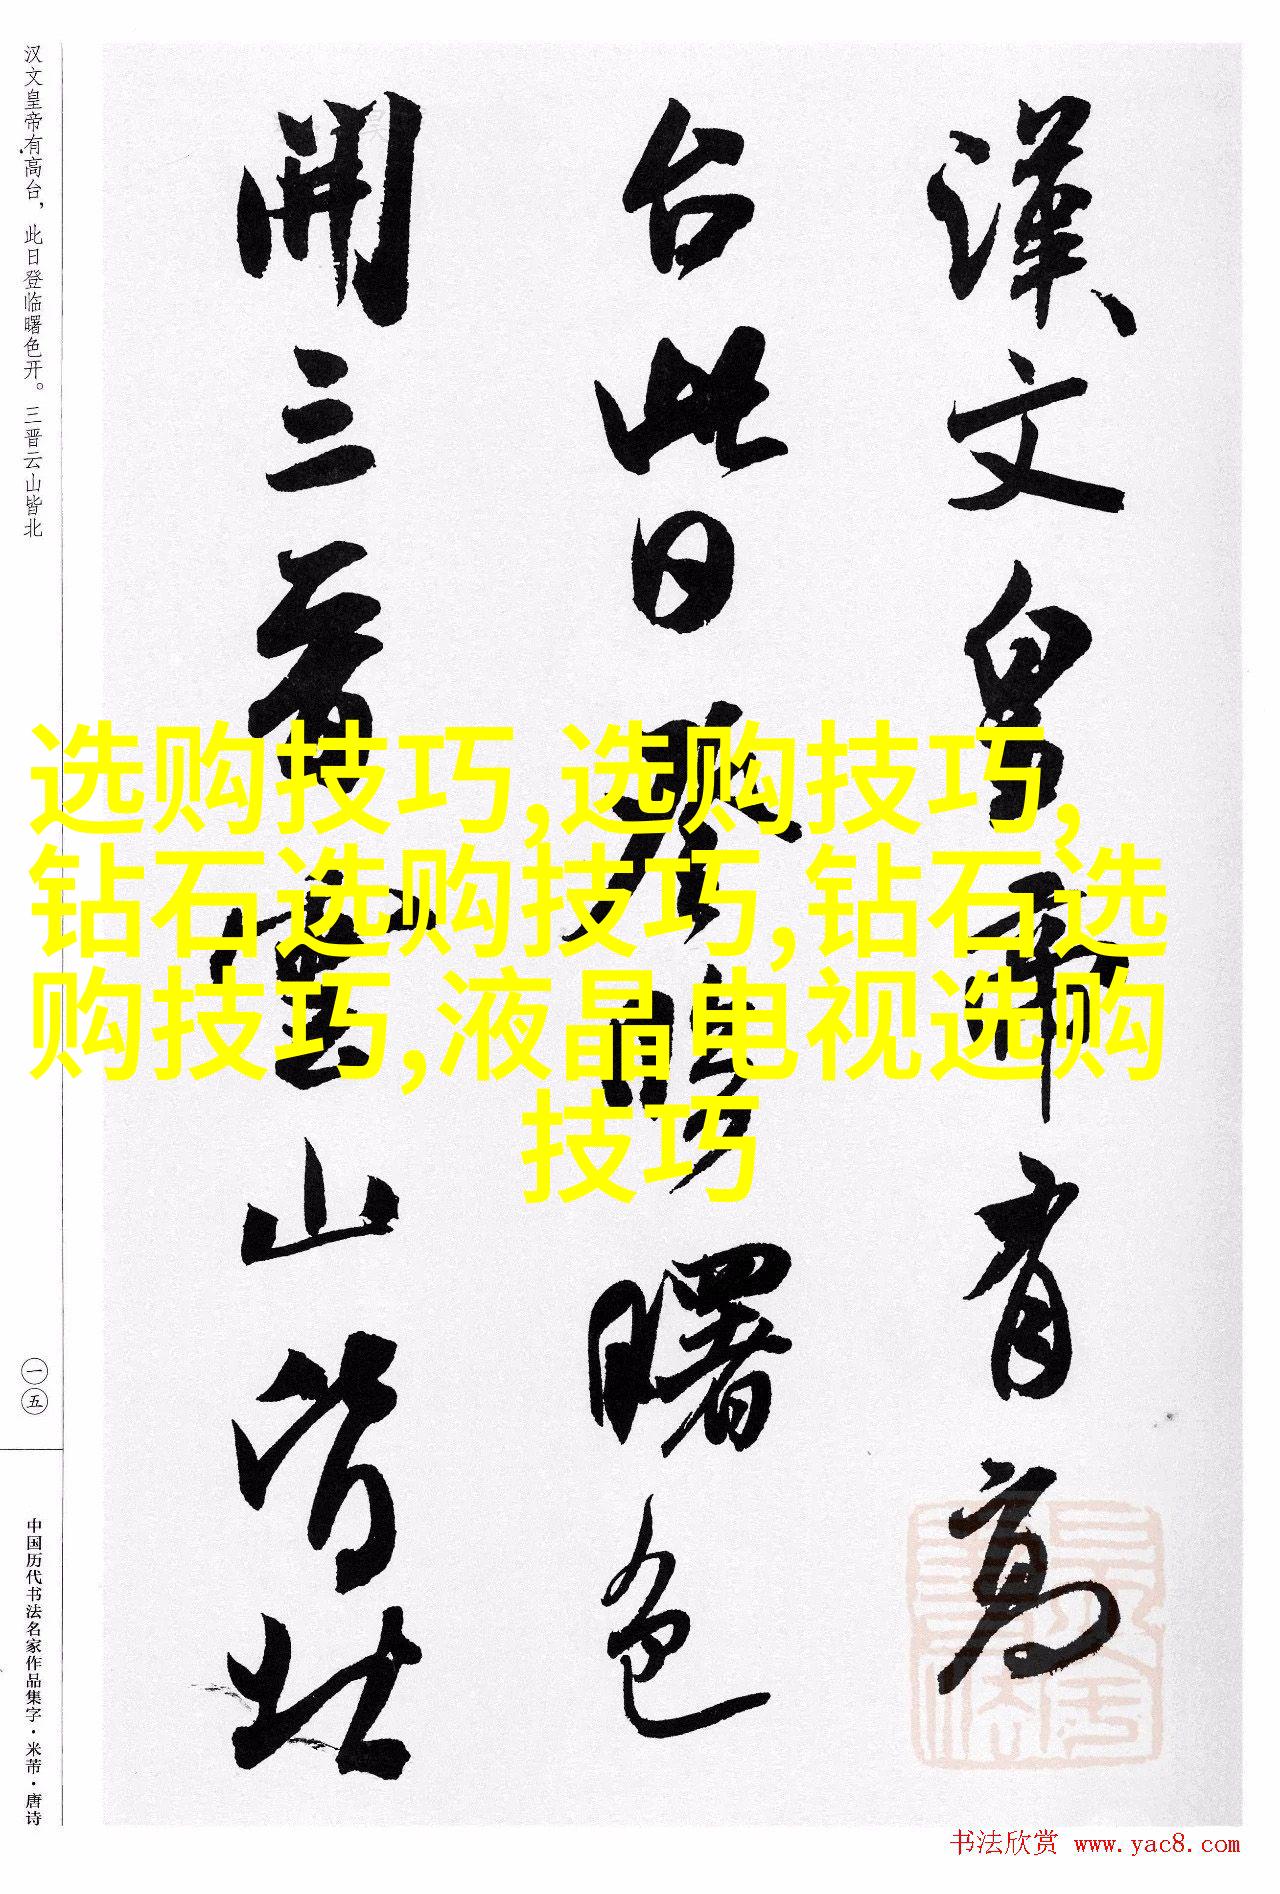 漢文皇帝有高
台此日登臨曙色
開三晉雲山皆北
选购技巧,选购技巧,
钻石选购技巧,钻石选
购技巧,液晶电视选购
技巧
汉文皇帝有高台，此日登临曙色开。三晋云山皆北
一五
中国历代书法名家作品集字·米芾·唐诗
书法欣赏 www.yac8.com